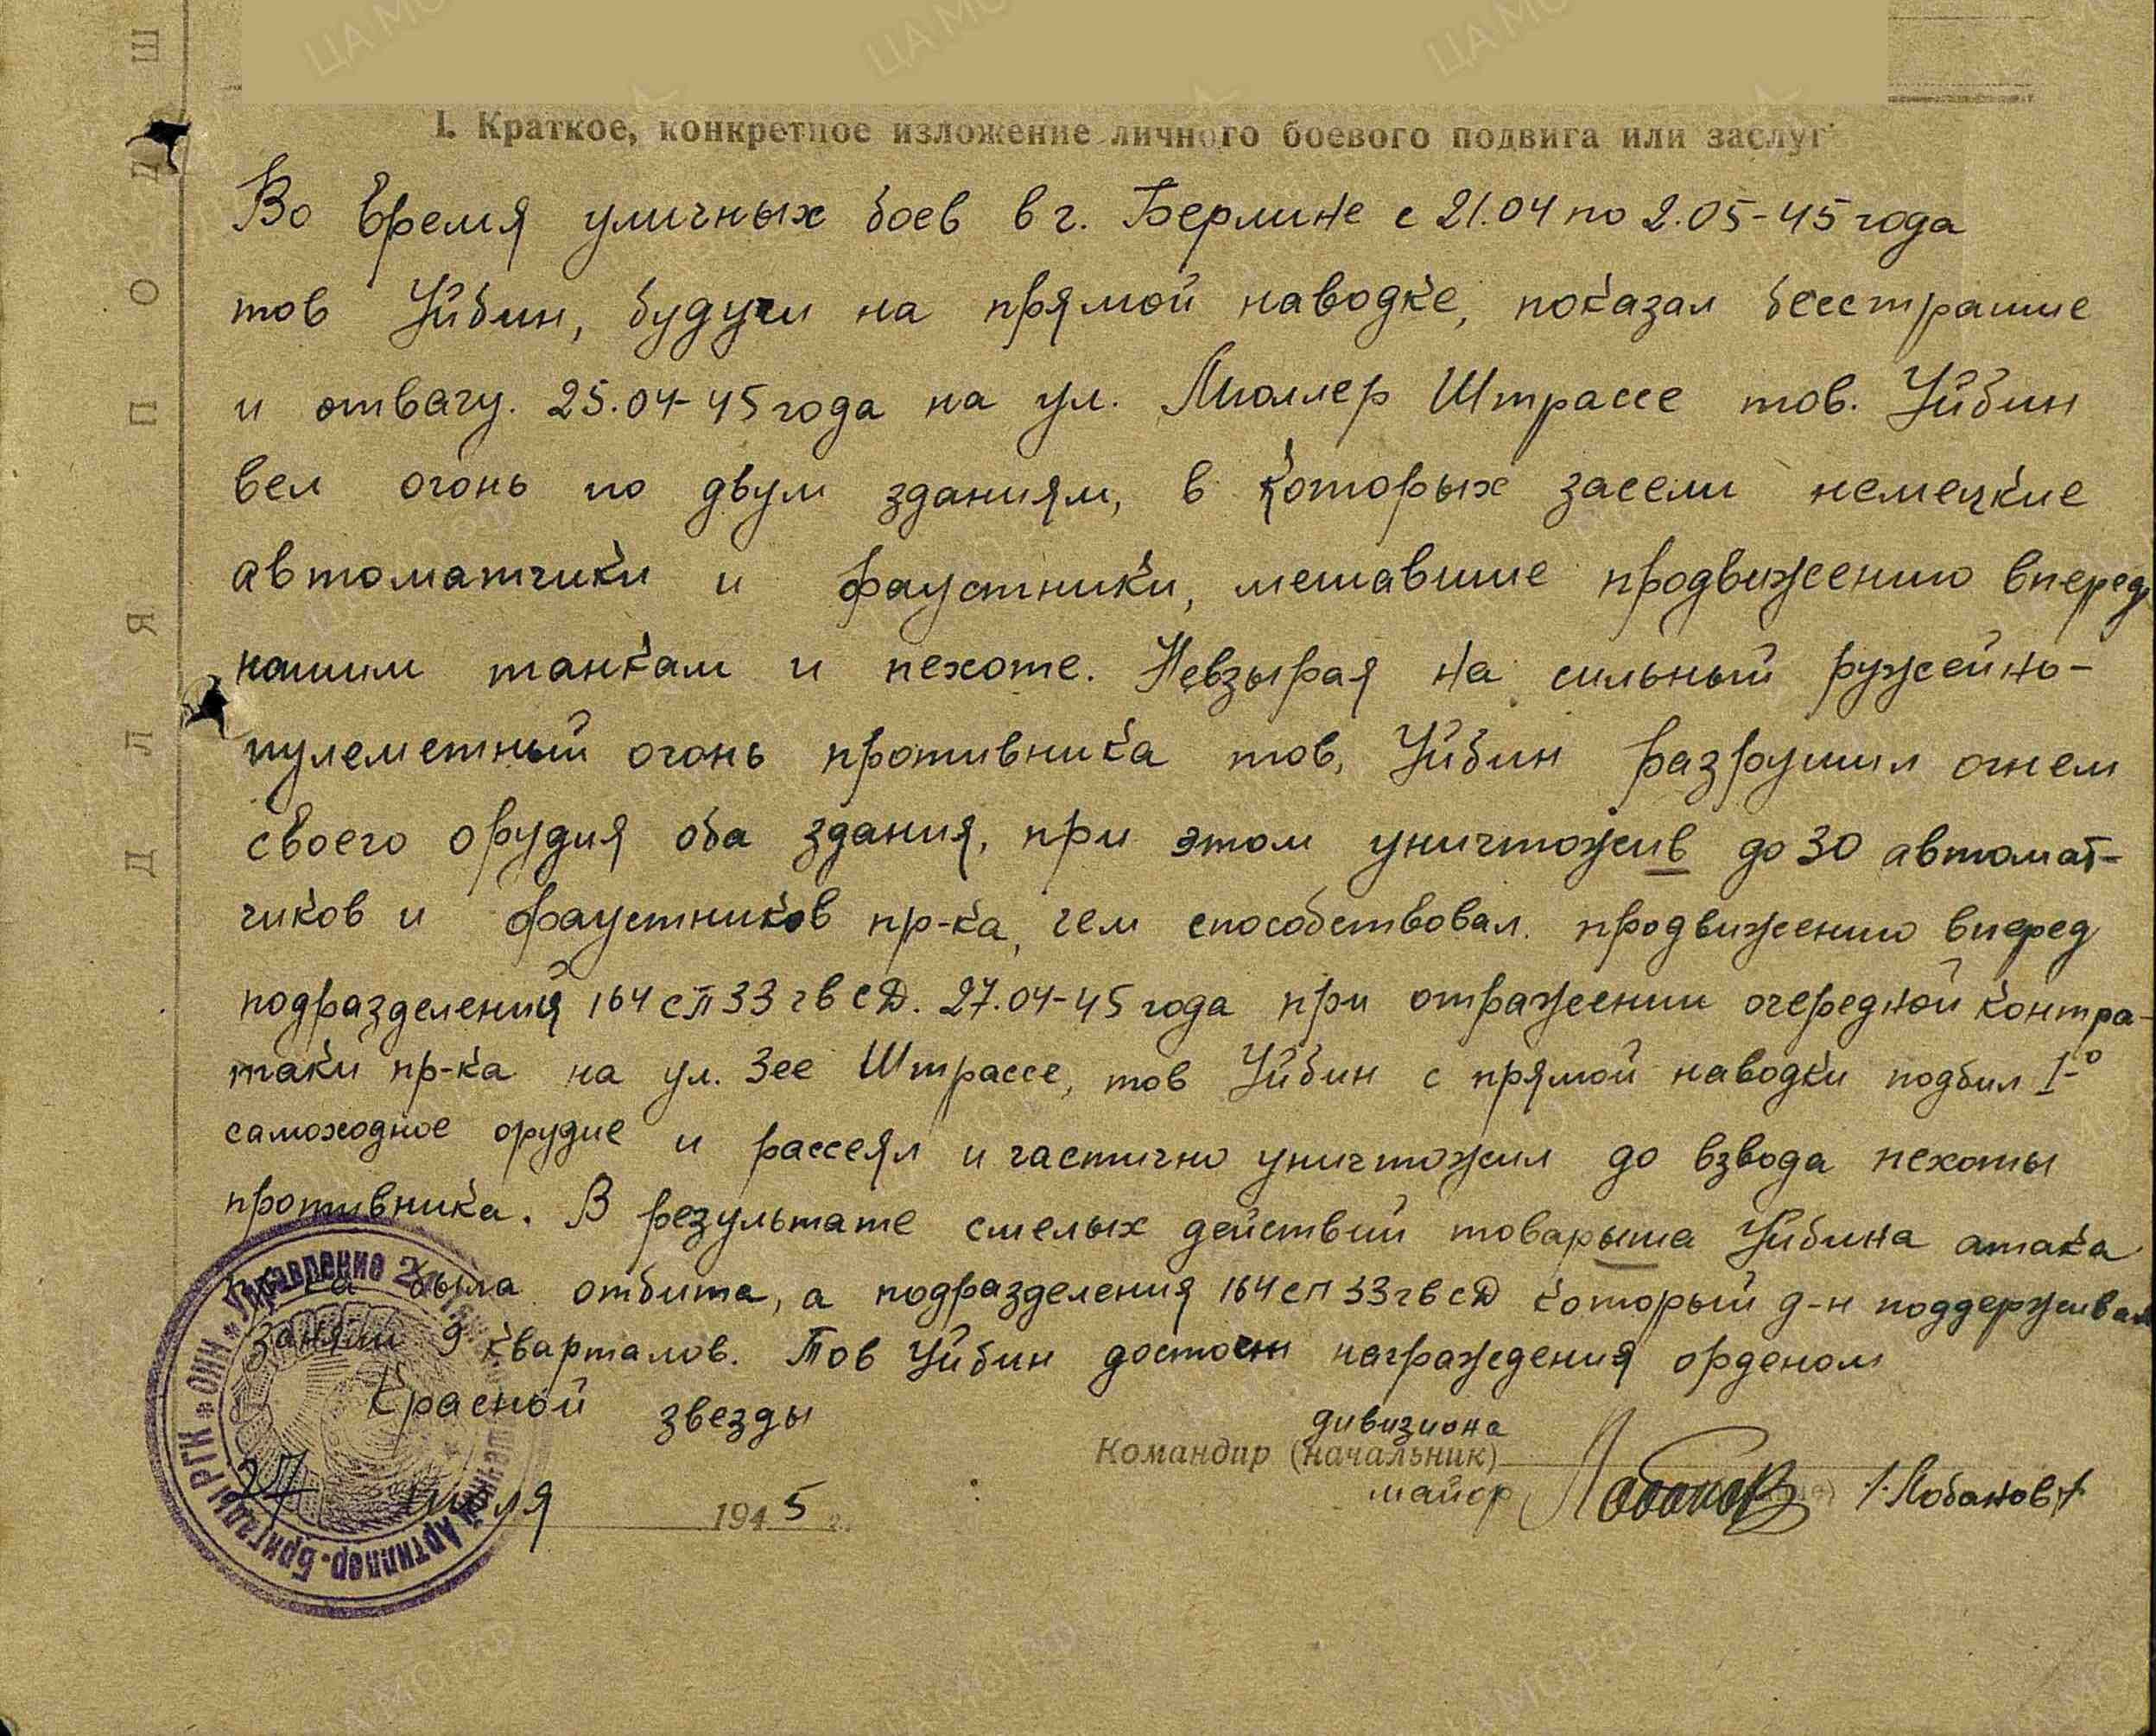 I. Краткое, конкретное изложение личного боевого подвига или заслуг
Во время уличных боев в г. Берлине с 21.04 по 2.05-45 года
тов Уйбин, будучи на прямой наводке, показал бесстрашие
и отвагу. 25.04-45 года на ул. Мюллер Штрассе тов. Уйбин
вел огонь по двум зданиям, в которых засели немецкие
автоматчики и фаустники, мешавшие продвижению вперед
нашим танкам и пехоте. Невзырая на сильный ружейно-
пулеметный огонь противника тов, Уйбин разрушил огнем
своего орудия оба здания, при этом уничтожив до 30 автомат-
чиков и фаустников пр-ка, чем способствовал продвижению вперед
подразделений 164 сп 33 гв сД. 27.04-45 года при отражении очередной контра-
таки пр-ка на ул. Зее Штрассе, тов Уйбин с прямой наводки подбил 1-о
самоходное орудие и рассеял и частично уничтожил до взвода пехоты
противника. В результате смелых действий товарыша Уйбина атака
пр-ка была отбита, а подразделения 164 сп 33 гв сД который д-н поддерживал
заняли 9 кварталов. Тов Уйбин достоен награждения орденом
Красной звезды
дивизиона
Командир (начальник)
майор Лобанов /Лобанов/
27 июля 1945 г.
Управление
Артиллер. Бригады РГК * ОИН *
ДЛЯ ПОДШ
ЦА МО РФ